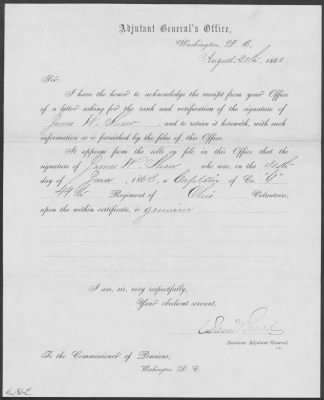 Adjutant General's Office,
Washington, D. C.
August 20th, 1868
Sir:
I have the honor to acknowledge the receipt from your Office
of a letter asking for the rank and verification of the signature of
James W. Shaw, and to return it herewith, with such
information as is furnished by the files of this Office.
It appears from the rolls on file in this Office that the
signature of James W. Shaw who was, on the
day of June, 186, a Captain of Co. "G"
49th Regiment of Ohio Volunteers,
upon the within certificate, is genuine
I am, sir, very respectfully,
Your obedient servant,
Assistant Adjutant General.
To the Commissioner of Pensions,
Washington, D. C.